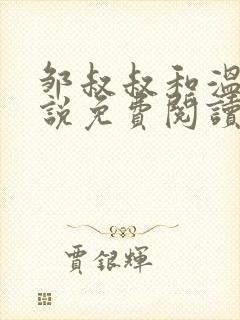 邹叔叔和温
说免費閱讀
賈銀輝